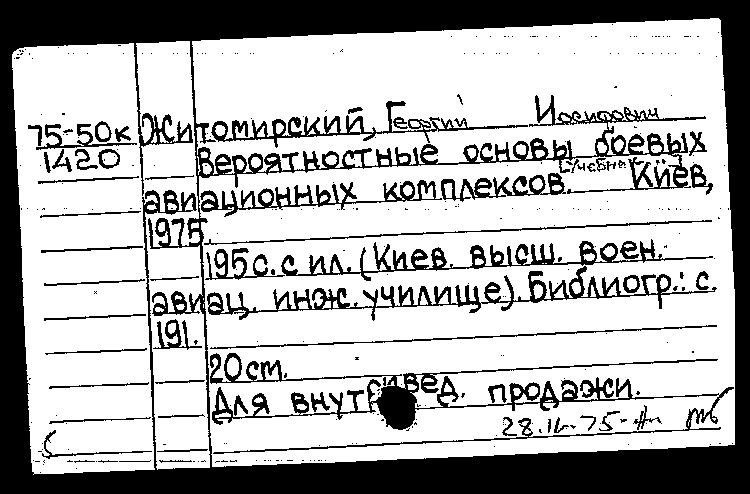 75-50к Житомирский, Георгий Иосифович
1420 Вероятностные основы боевых
авиационных комплексов. [Учебник]. Киев,
1975.
195 с. с ил. (Киев. высш. воен.
авиац. инж. училище). Библиогр.: с.
191.
20 см.
Для внутривед. продажи.